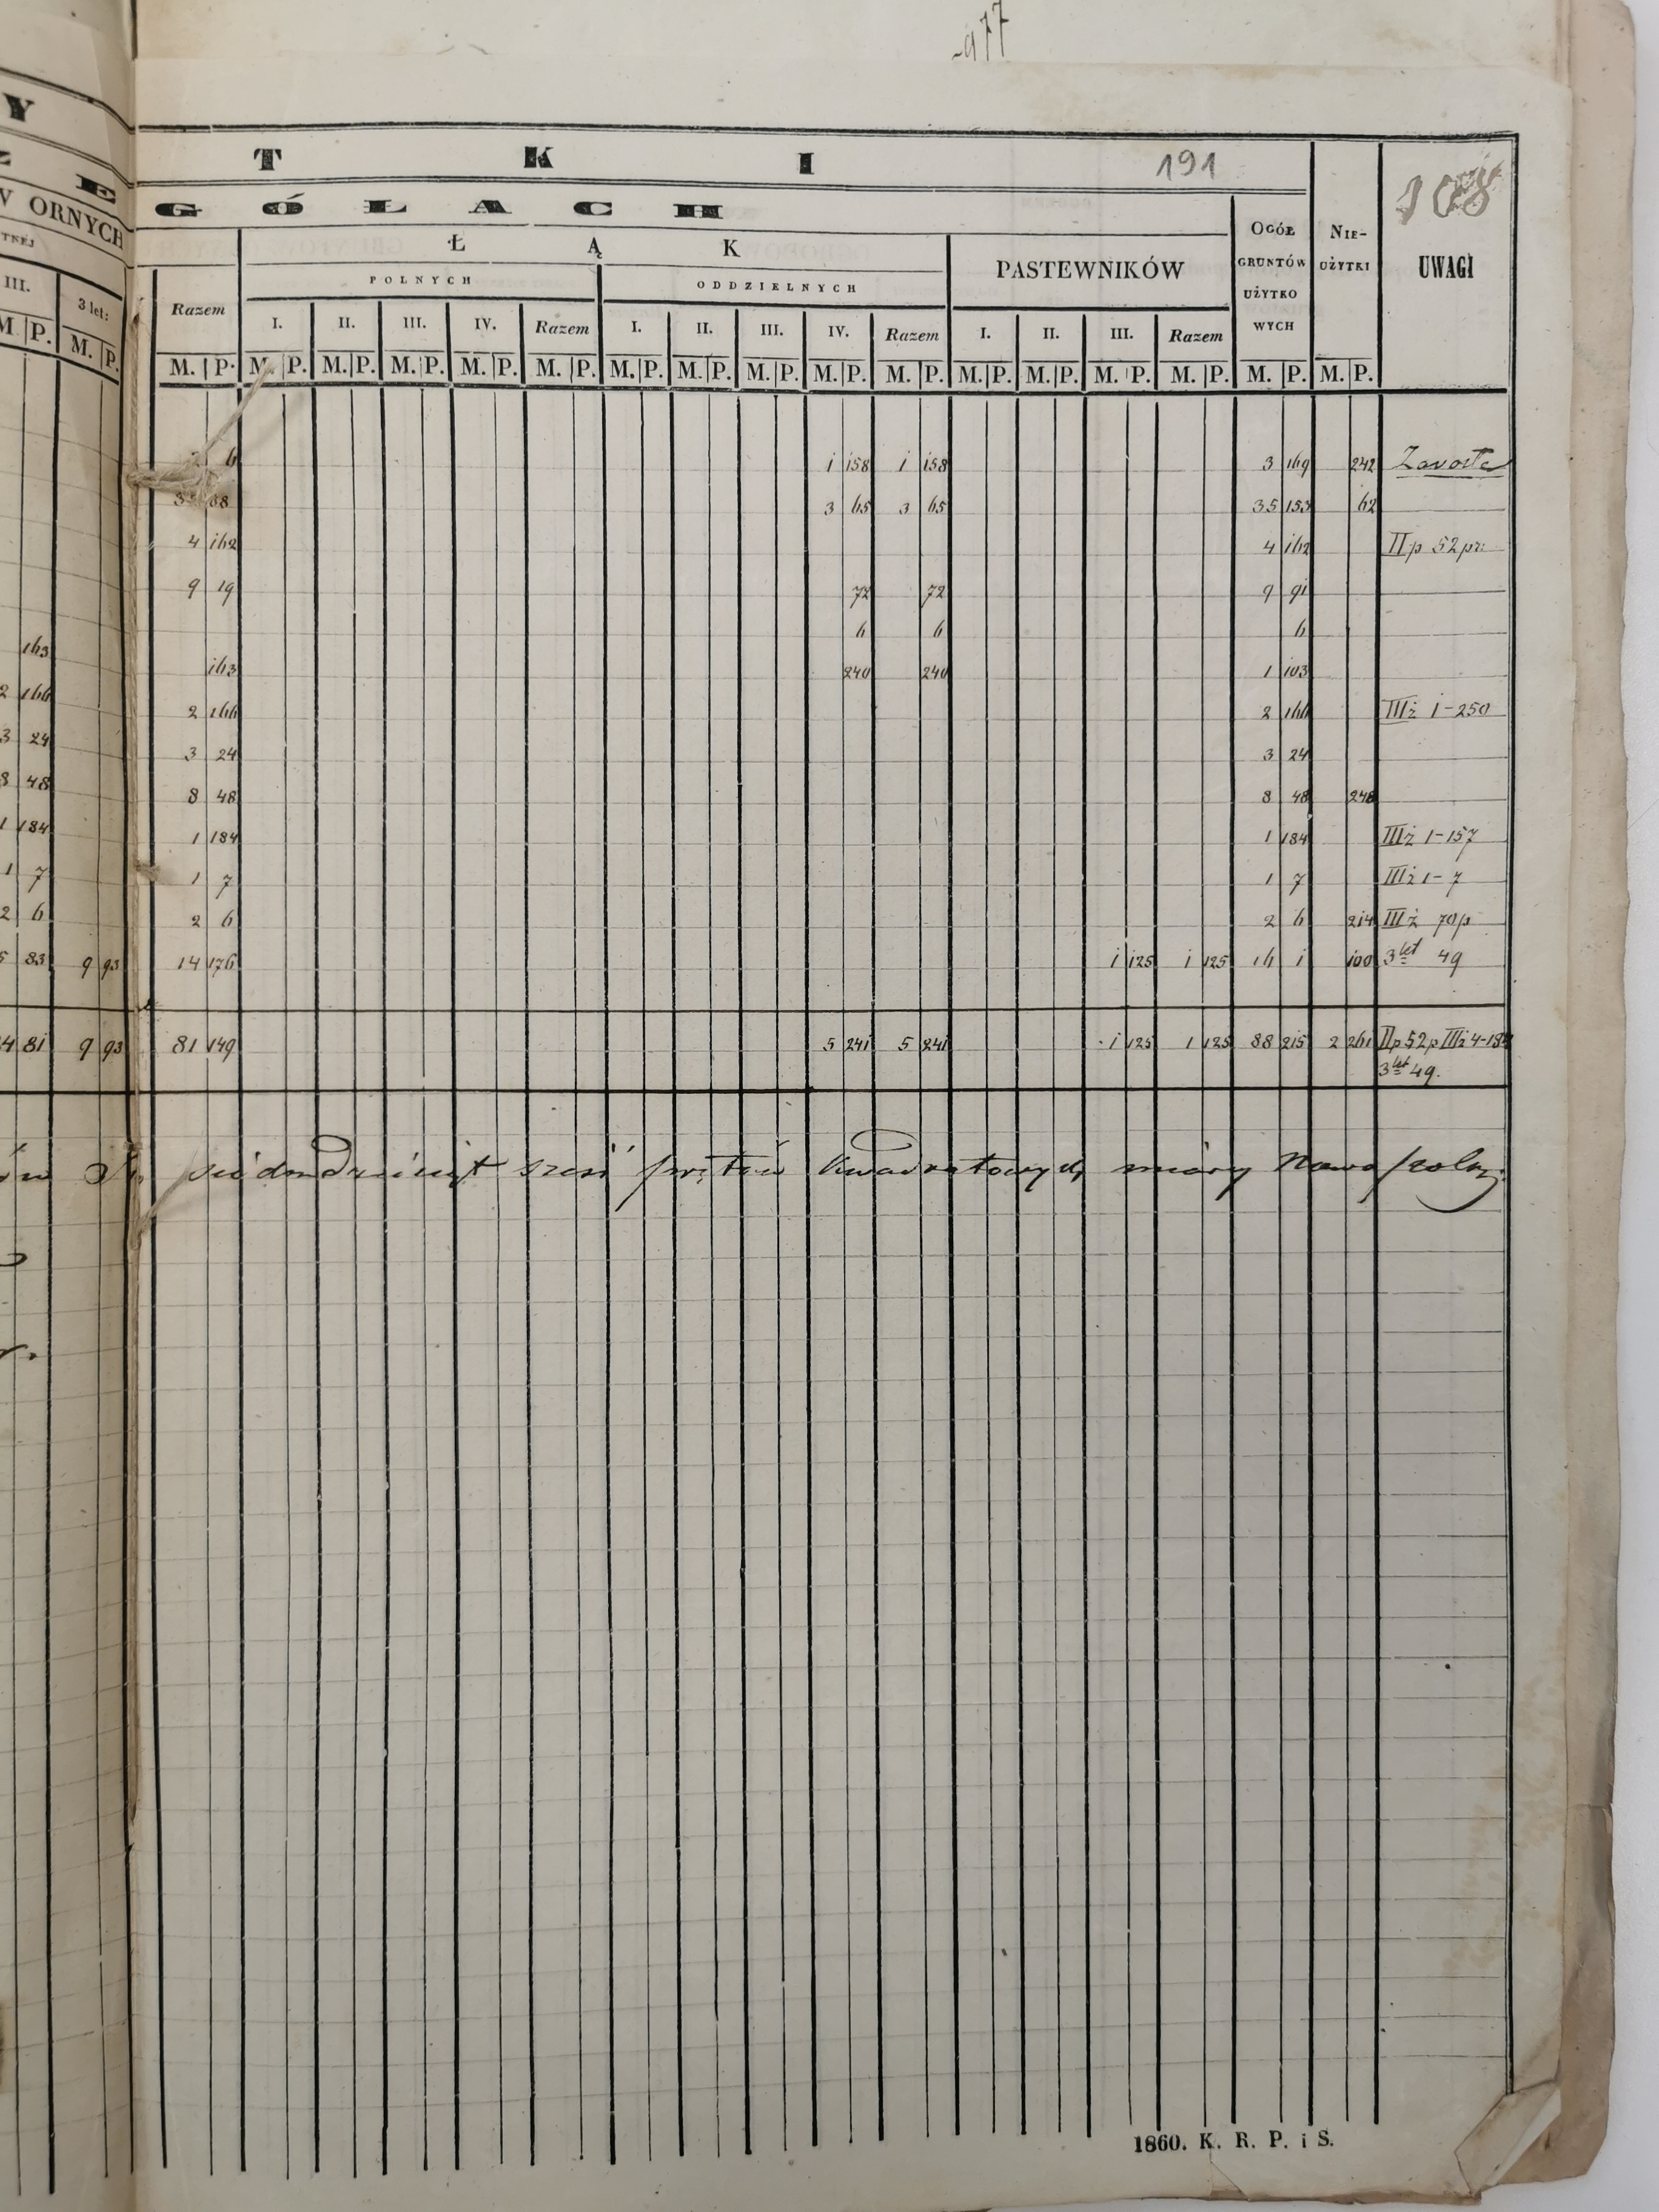 977
T K I 191
Y
Z E G Ó Ł A C H 108
W ORNYCH Ł Ą K PASTEWNIKÓW OGÓŁ GRUNTÓW UŻYTKO WYCH NIE- UŻYTKI UWAGI
TNEJ POLNYCH ODDZIELNYCH
III. 3 let: Razem I. II. III. IV. Razem I. II. III. IV. Razem I. II. III. Razem
M. P. M. P. M. P. M. P. M. P. M. P. M. P. M. P. M. P. M. P. M. P. M. P. M. P. M. P. M. P. M. P. M. P. M. P. M. P.
6 1 158 1 158 3 169 242
35 88 3 65 3 65 35 153 62
4 162 4 162 II p 52 pr:
9 19 72 72 9 91
6 6 6
163 163 240 240 1 103
2 166 2 166 2 166 III ż 1-250
3 24 3 24 3 24
8 48 8 48 8 48 248
1 184 1 184 1 184 III ż 1-157
1 7 1 7 1 7 III ż 1-7
2 6 2 6 2 6 214 III ż 70p
5 83 9 93 14 176 1 125 1 125 16 1 100 3 let 49
4 81 9 93 81 149 5 241 5 241 1 125 1 125 88 215 2 261 II p 52 p III ż 4-184
3 let 49.
siedmdziesiąt sześć prętów kwadratowych miary Nowopolskiej
1860. K. R. P. i S.